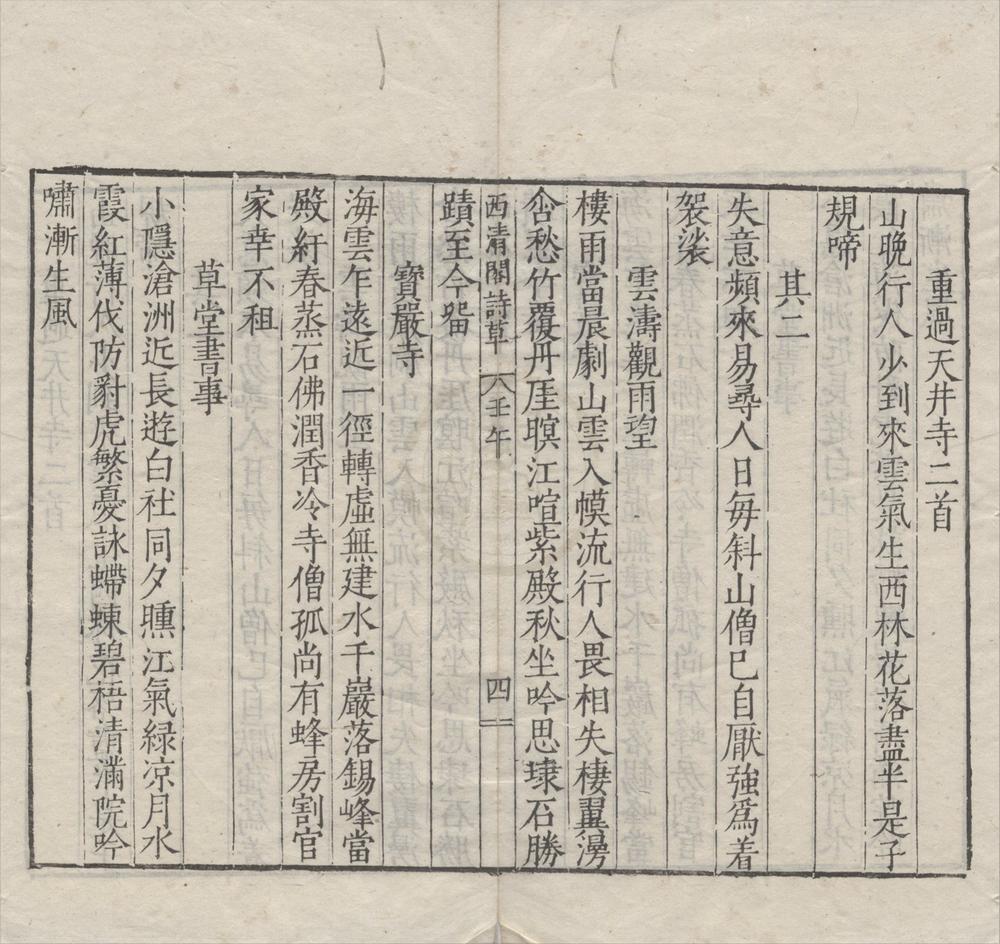 重過天井寺二首
山晚行人少到來雲氣生西林花落盡半是子
規啼
其二
失意頻來易尋人日每斜山僧已自厭強爲着
袈裟
雲濤觀雨望
樓雨當晨劇山雲入幙流行人畏相失棲翼漫
含愁竹覆丹厓暝江喧紫殿秋坐吟思㻋石勝
蹟至今畱
西清閣詩草 八壬午 四
寶嚴寺
海雲乍遠近一徑轉虛無建水千巖落錫峰當
殿紆春蒸石佛潤香冷寺僧孤尚有蜂房割官
家幸不租
草堂書事
小隱滄洲近長遊白社同夕曛江氣綠凉月水
霞紅薄伐防豺虎繁憂詠螮蝀碧梧清滿院吟
嘯漸生風